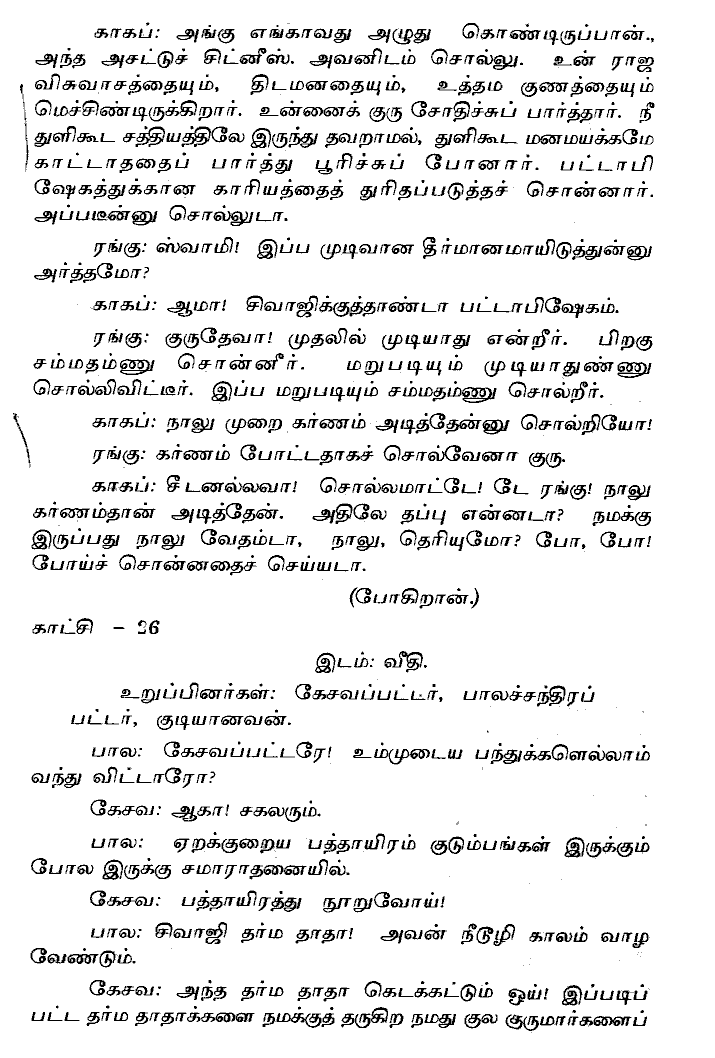 காகப்: அங்கு எங்காவது அழுது கொண்டிருப்பான்.,
அந்த அசட்டுச் சிட்னீஸ். அவனிடம் சொல்லு. உன் ராஜ
விசுவாசத்தையும், திடமனதையும், உத்தம குணத்தையும்
மெச்சிண்டிருக்கிறார். உன்னைக் குரு சோதிச்சுப் பார்த்தார். நீ
துளிகூட சத்தியத்திலே இருந்து தவறாமல், துளிகூட மனமயக்கமே
காட்டாததைப் பார்த்து பூரிச்சுப் போனார். பட்டாபி
ஷேகத்துக்கான காரியத்தைத் துரிதப்படுத்தச் சொன்னார்.
அப்படீன்னு சொல்லுடா.
ரங்கு: ஸ்வாமி! இப்ப முடிவான தீர்மானமாயிடுத்துன்னு
அர்த்தமோ?
காகப்: ஆமா! சிவாஜிக்குத்தாண்டா பட்டாபிஷேகம்.
ரங்கு: குருதேவா! முதலில் முடியாது என்றீர். பிறகு
சம்மதம்ணு சொன்னீர். மறுபடியும் முடியாதுண்ணு
சொல்லிவிட்டீர். இப்ப மறுபடியும் சம்மதம்ணு சொல்றீர்.
காகப்: நாலு முறை கர்ணம் அடித்தேன்னு சொல்றியோ!
ரங்கு: கர்ணம் போட்டதாகச் சொல்வேனா குரு.
காகப்: சீடனல்லவா! சொல்லமாட்டே! டே ரங்கு! நாலு
கர்ணம்தான் அடித்தேன். அதிலே தப்பு என்னடா? நமக்கு
இருப்பது நாலு வேதம்டா, நாலு, தெரியுமோ? போ, போ!
போய்ச் சொன்னதைச் செய்யடா.
(போகிறான்.)
காட்சி – 36
இடம்: வீதி.
உறுப்பினர்கள்: கேசவப்பட்டர், பாலச்சந்திரப்
பட்டர், குடியானவன்.
பால: கேசவப்பட்டரே! உம்முடைய பந்துக்களெல்லாம்
வந்து விட்டாரோ?
கேசவ: ஆகா! சகலரும்.
பால: ஏறக்குறைய பத்தாயிரம் குடும்பங்கள் இருக்கும்
போல இருக்கு சமாராதனையில்.
கேசவ: பத்தாயிரத்து நூறுவோய்!
பால: சிவாஜி தர்ம தாதா! அவன் நீடூழி காலம் வாழ
வேண்டும்.
கேசவ: அந்த தர்ம தாதா கெடக்கட்டும் ஓய்! இப்படிப்
பட்ட தர்ம தாதாக்களை நமக்குத் தருகிற நமது குல குருமார்களைப்